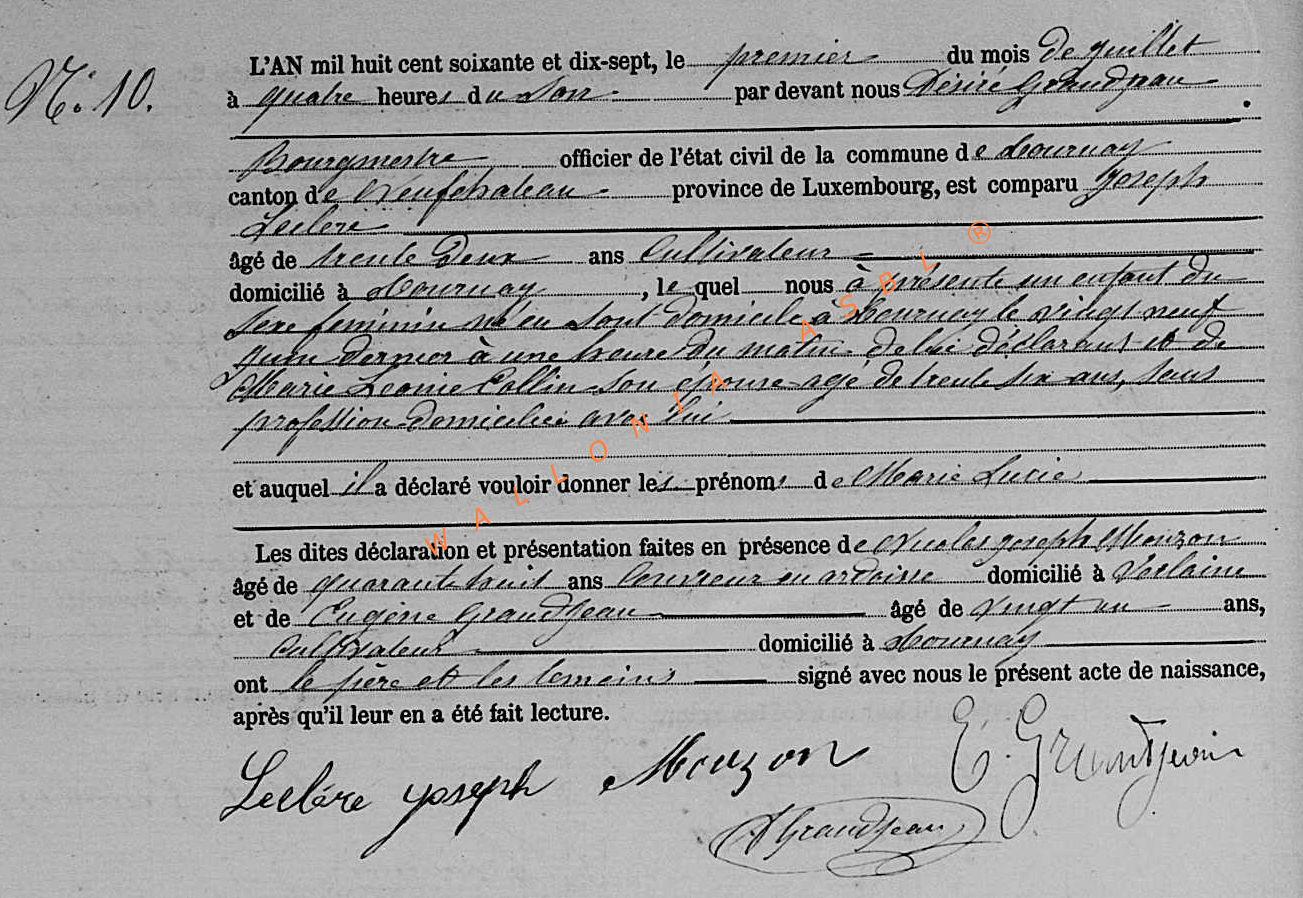 N.° 10.
L'AN mil huit cent soixante et dix-sept, le premier du mois de juillet
à quatre heures du soir par devant nous Désiré Grandjean
Bourgmestre officier de l'état civil de la commune de Tournay
canton de Neufchateau province de Luxembourg, est comparu Joseph
Leclère
âgé de trente deux ans Cultivateur
domicilié à Tournay, le quel nous à présenté un enfant du
sexe feminin né en domicile à Tournay le vingt neuf
juin dernier à une heure du matin de lui déclarant et de
Marie Léonie Collin son épouse agé de trente six ans, sans
profession domiciliée avec lui
et auquel il a déclaré vouloir donner les prénoms de Marie Lucie
Les dites déclaration et présentation faites en présence de Nicolas Joseph Mouzon
âgé de quarante huit ans Couvreur en ardoise domicilié à
et de Eugène Grandjean âgé de vingt un ans,
Cultivateur domicilié à Tournay
ont le père et les temoins signé avec nous le présent acte de naissance,
après qu'il leur en a été fait lecture.
Leclère Joseph Mouzon E. Grandjean
D Grandjean
WALLONIA ASBL ®